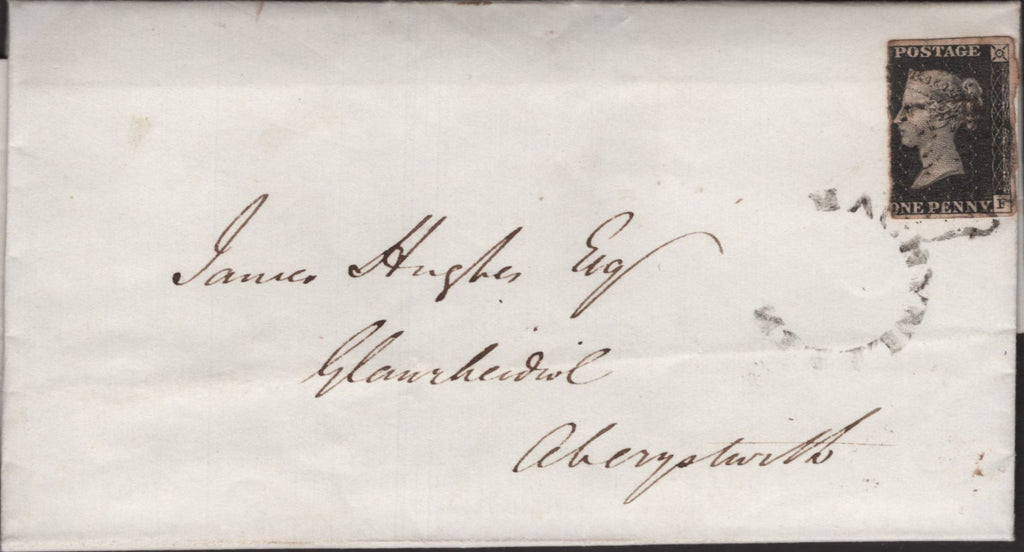 POSTAGE
ONE PENNY. F
MACHYNLLETH
James Hughes Esq
Glanrheidiol
Aberystwith